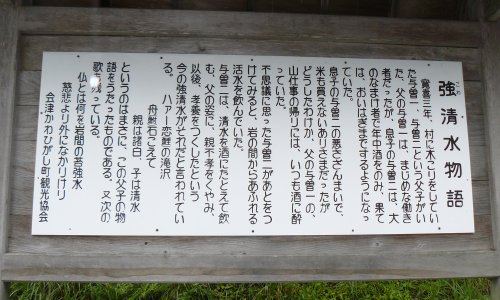 強清水物語
こわ
寛喜三年、村に木こりをしてい
た与曽一、与曽二という父子がい
た。父の与曽一は、まじめな働き
者だったが、息子の与曽二は、大
のなまけ者で年中酒をのみ、果て
は、おいはぎまでするようになっ
ていた。
息子の与曽二の悪さざんまいで、
米も買えないありさまだったが
どうしたわけか、父の与曽一の、
山仕事の帰りには、いつも酒に酔
っていた。
不思議に思った与曽二があとをつ
けてみると、岩の間からあふれる
活水を飲んでいた。
与曽一は、清水を酒にたとえて飲
む、父の姿に、親不孝をくやみ、
以後、孝養をつくしたという
今の強清水がそれだと言われてい
る。
ハァー恋鮭の滝沢
舟鮒石こえて
親は諸白、子は清水
というのはまさに、この父子の物
語をうたったものである。又次の
歌も残っている。
仏とは何を岩間の苔強水
慈悲より外になかりけり
会津かわひがし町観光協会